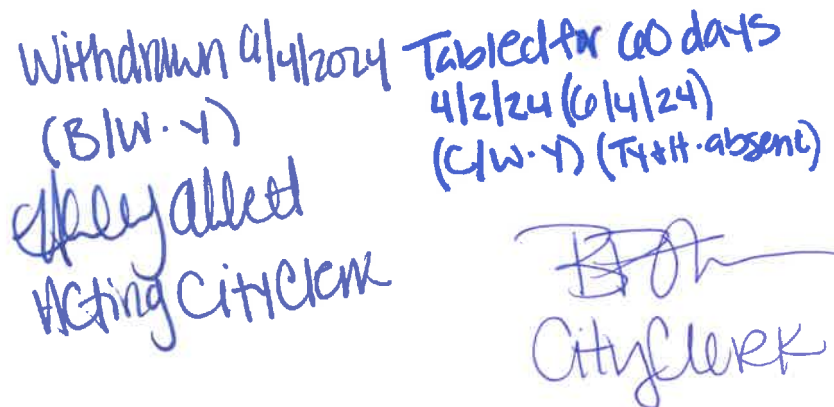 Withdrawn 6/4/2024
(B/W·Y)
Acting City Clerk
Tabled for 60 days
4/2/24 (6/4/24)
(C/W·Y) (Ty+H·absent)
City Clerk